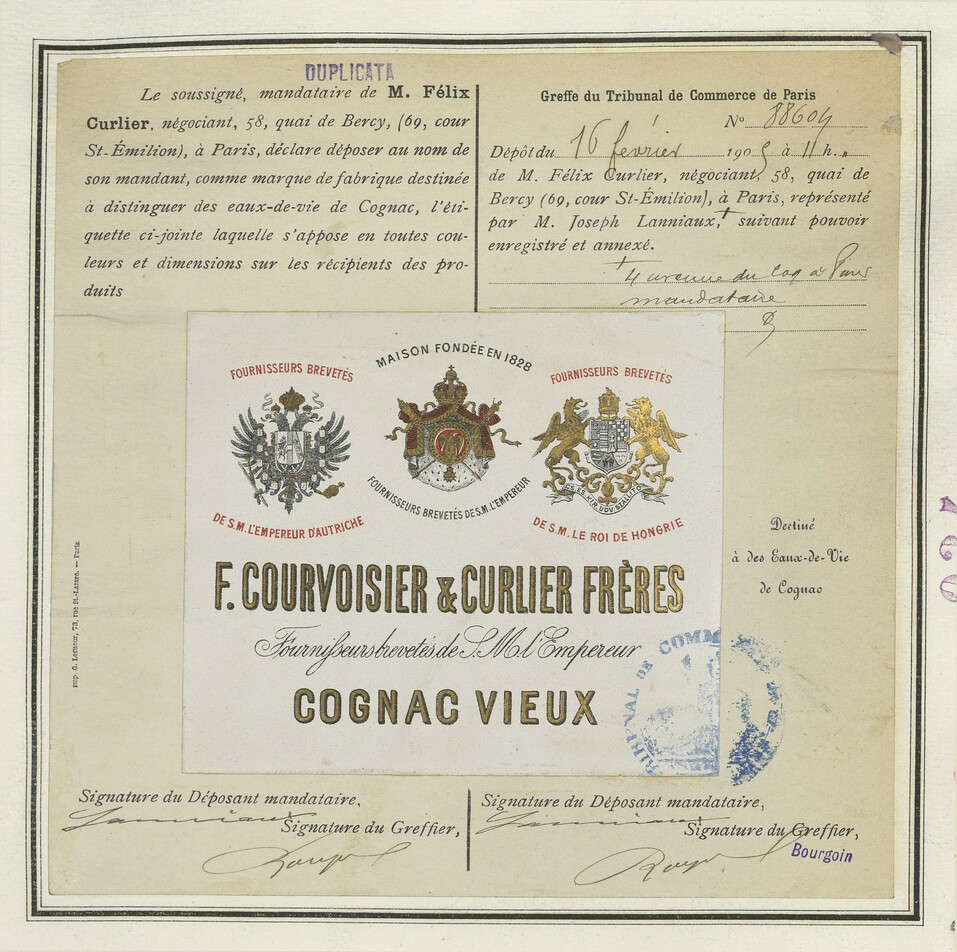 DUPLICATA
Le soussigné, mandataire de M. Félix
Curlier, négociant, 58, quai de Bercy, (69, cour
St-Émilion), à Paris, déclare déposer au nom de
son mandant, comme marque de fabrique destinée
à distinguer des eaux-de-vie de Cognac, l'éti-
quette ci-jointe laquelle s'appose en toutes cou-
leurs et dimensions sur les récipients des pro-
duits
Greffe du Tribunal de Commerce de Paris
No 88604
Dépôt du 16 février 1905 à 11 h. „
de M. Félix Curlier, négociant, 58, quai de
Bercy (69, cour St-Émilion), à Paris, représenté
par M. Joseph Lanniaux,+ suivant pouvoir
enregistré et annexé.
+ 4 avenue du Coq à Paris
mandataire
MAISON FONDÉE EN 1828
FOURNISSEURS BREVETÉS
FOURNISSEURS BREVETÉS
FOURNISSEURS BREVETÉS DE S.M. L'EMPEREUR
DE S.M. L'EMPEREUR D'AUTRICHE
DE S.M. LE ROI DE HONGRIE
F. COURVOISIER & CURLIER FRÈRES
Fournisseurs brevetés de S. M. l'Empereur
COGNAC VIEUX
Destiné
à des Eaux-de-Vie
de Cognac
TRIBUNAL DE COMM
73, rue St-Lazare. — Paris.
Signature du Déposant mandataire,
Lanniaux
Signature du Greffier,
Signature du Déposant mandataire,
Lanniaux
Signature du Greffier,
Bourgoin